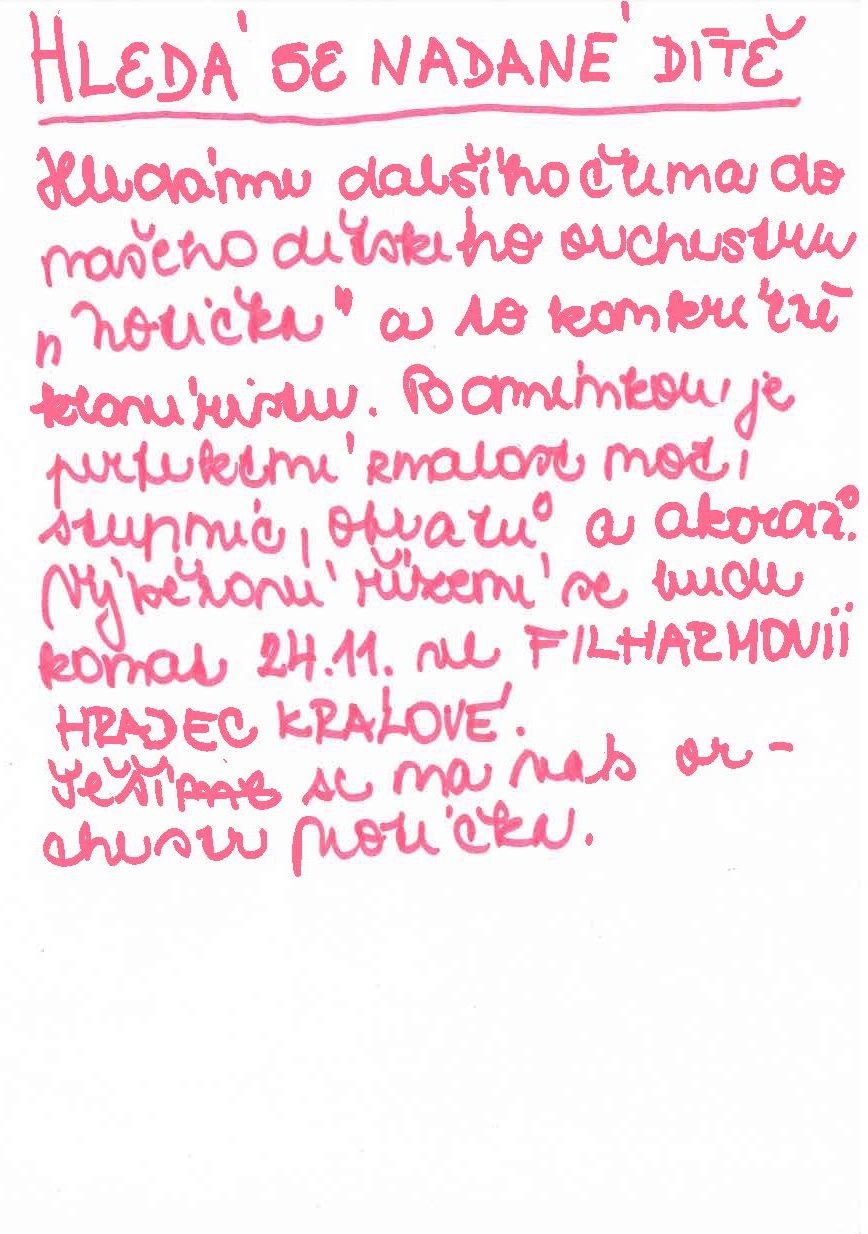 HLEDÁ SE NADANÉ DÍTĚ
Hledáme dalšího člena do
našeho dětského orchestru
„Notička" a to konkrétně
klavíristu. Podmínkou je
perfektní znalost not,
stupnic, obratů a akordů.
Výběrové řízení se bude
konat 24.11. ve FILHARMONII
HRADEC KRÁLOVÉ.
Těší se na vás or-
chestr Notička.